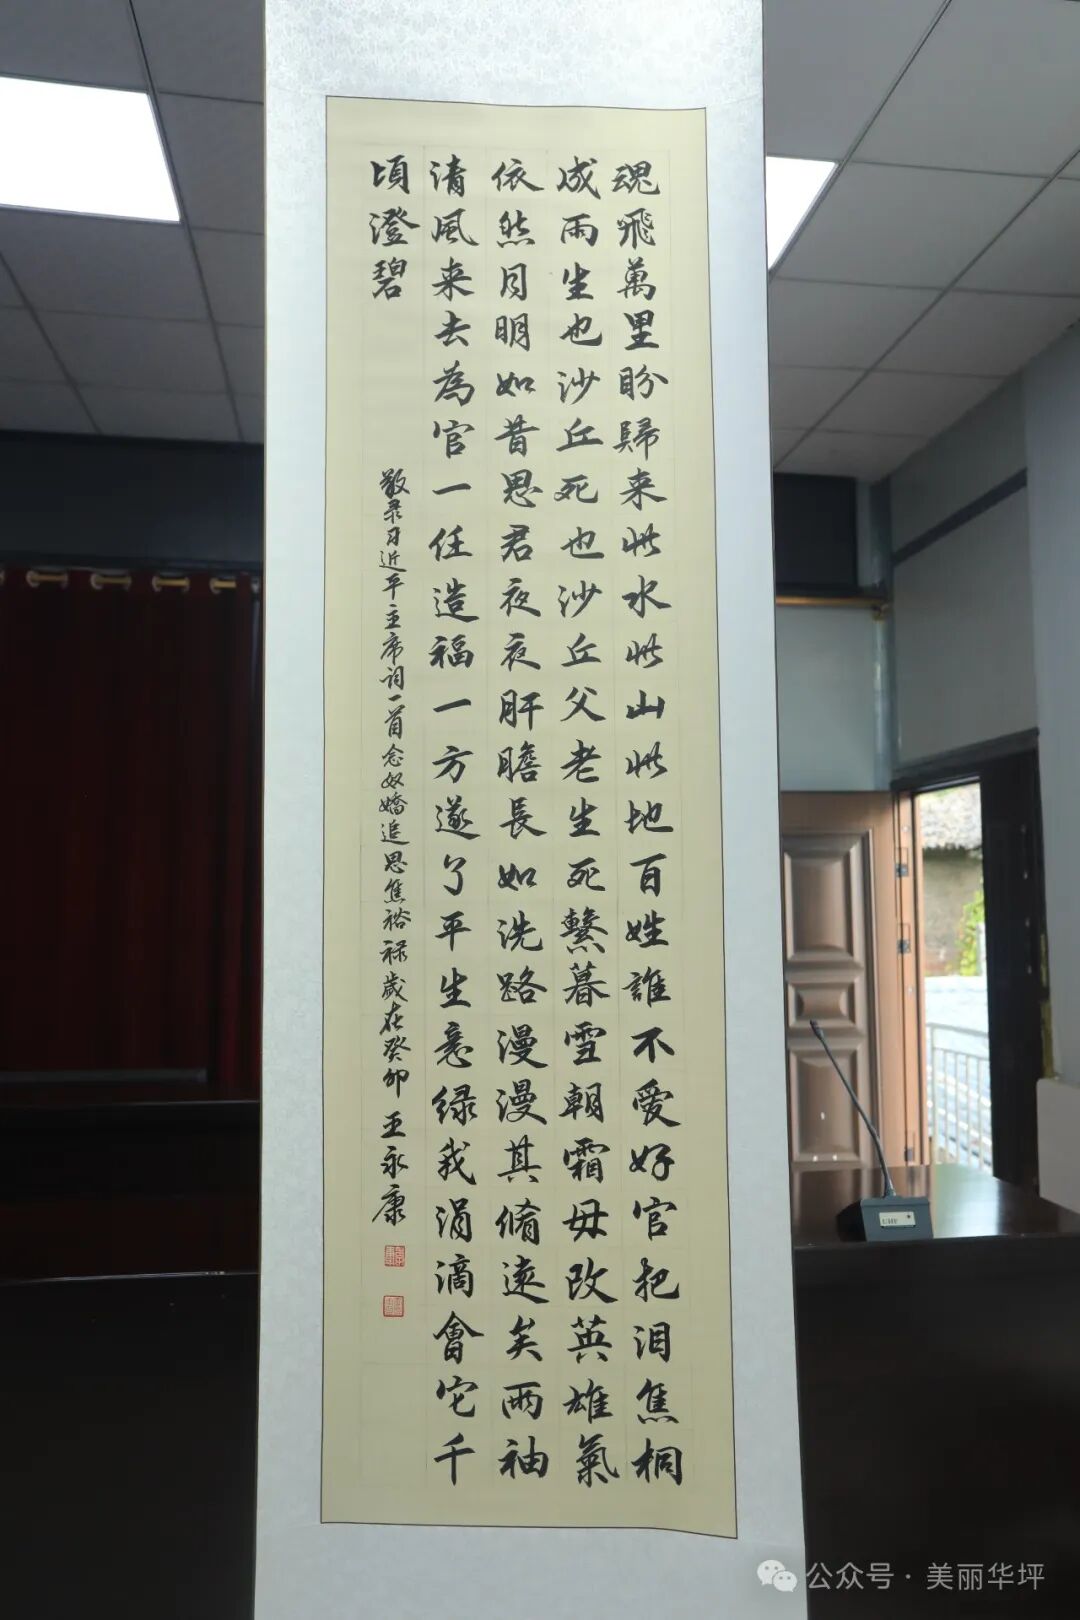 魂飛萬里盼歸来此水此山此地百姓誰不愛好官把泪焦桐
成雨生也沙丘死也沙丘父老生死繫暮雪朝霜毋改英雄氣
依然月明如昔思君夜夜肝膽長如洗路漫漫其脩遠矣兩袖
清風来去為官一任造福一方遂了平生意绿我涓滴會它千
頃澄碧
敬录习近平主席词一首念奴嬌追思焦裕禄歲在癸卯 王永康
公众号·美丽华坪